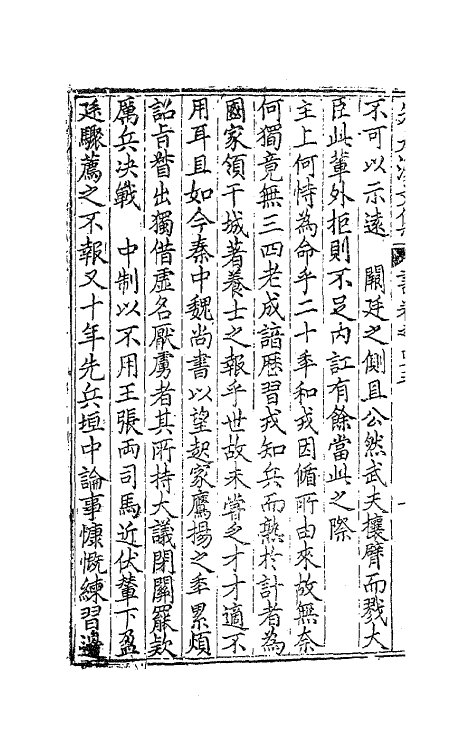 不可以示遠　闕廷之側且公然武夫攘臂而戮大
臣此輩外拒則不足內訌有餘當此之際
主上何恃為命乎二十年和戎因循所由來故無奈
何獨竟無三四老成諳歷習戎知兵而熟於計者為
國家領干城著養士之報乎世故未嘗乏才才適不
用耳且如今秦中魏尚書以望起家鷹揚之年累煩
詔旨督出獨借虛名厭虜者其所持大議閉關罷款
厲兵決戰　中制以不用王張両司馬近伏輦下盈
廷驟薦之不報又十年先兵垣中論事慷慨練習邊